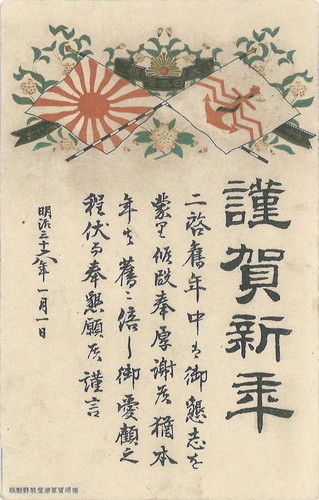 謹賀新年
二啓舊年中ハ御懇志を
蒙り候段奉厚謝候猶本
年も舊ニ倍し御愛顧之
程伏而奉懇願候謹言
明治三十六年一月一日